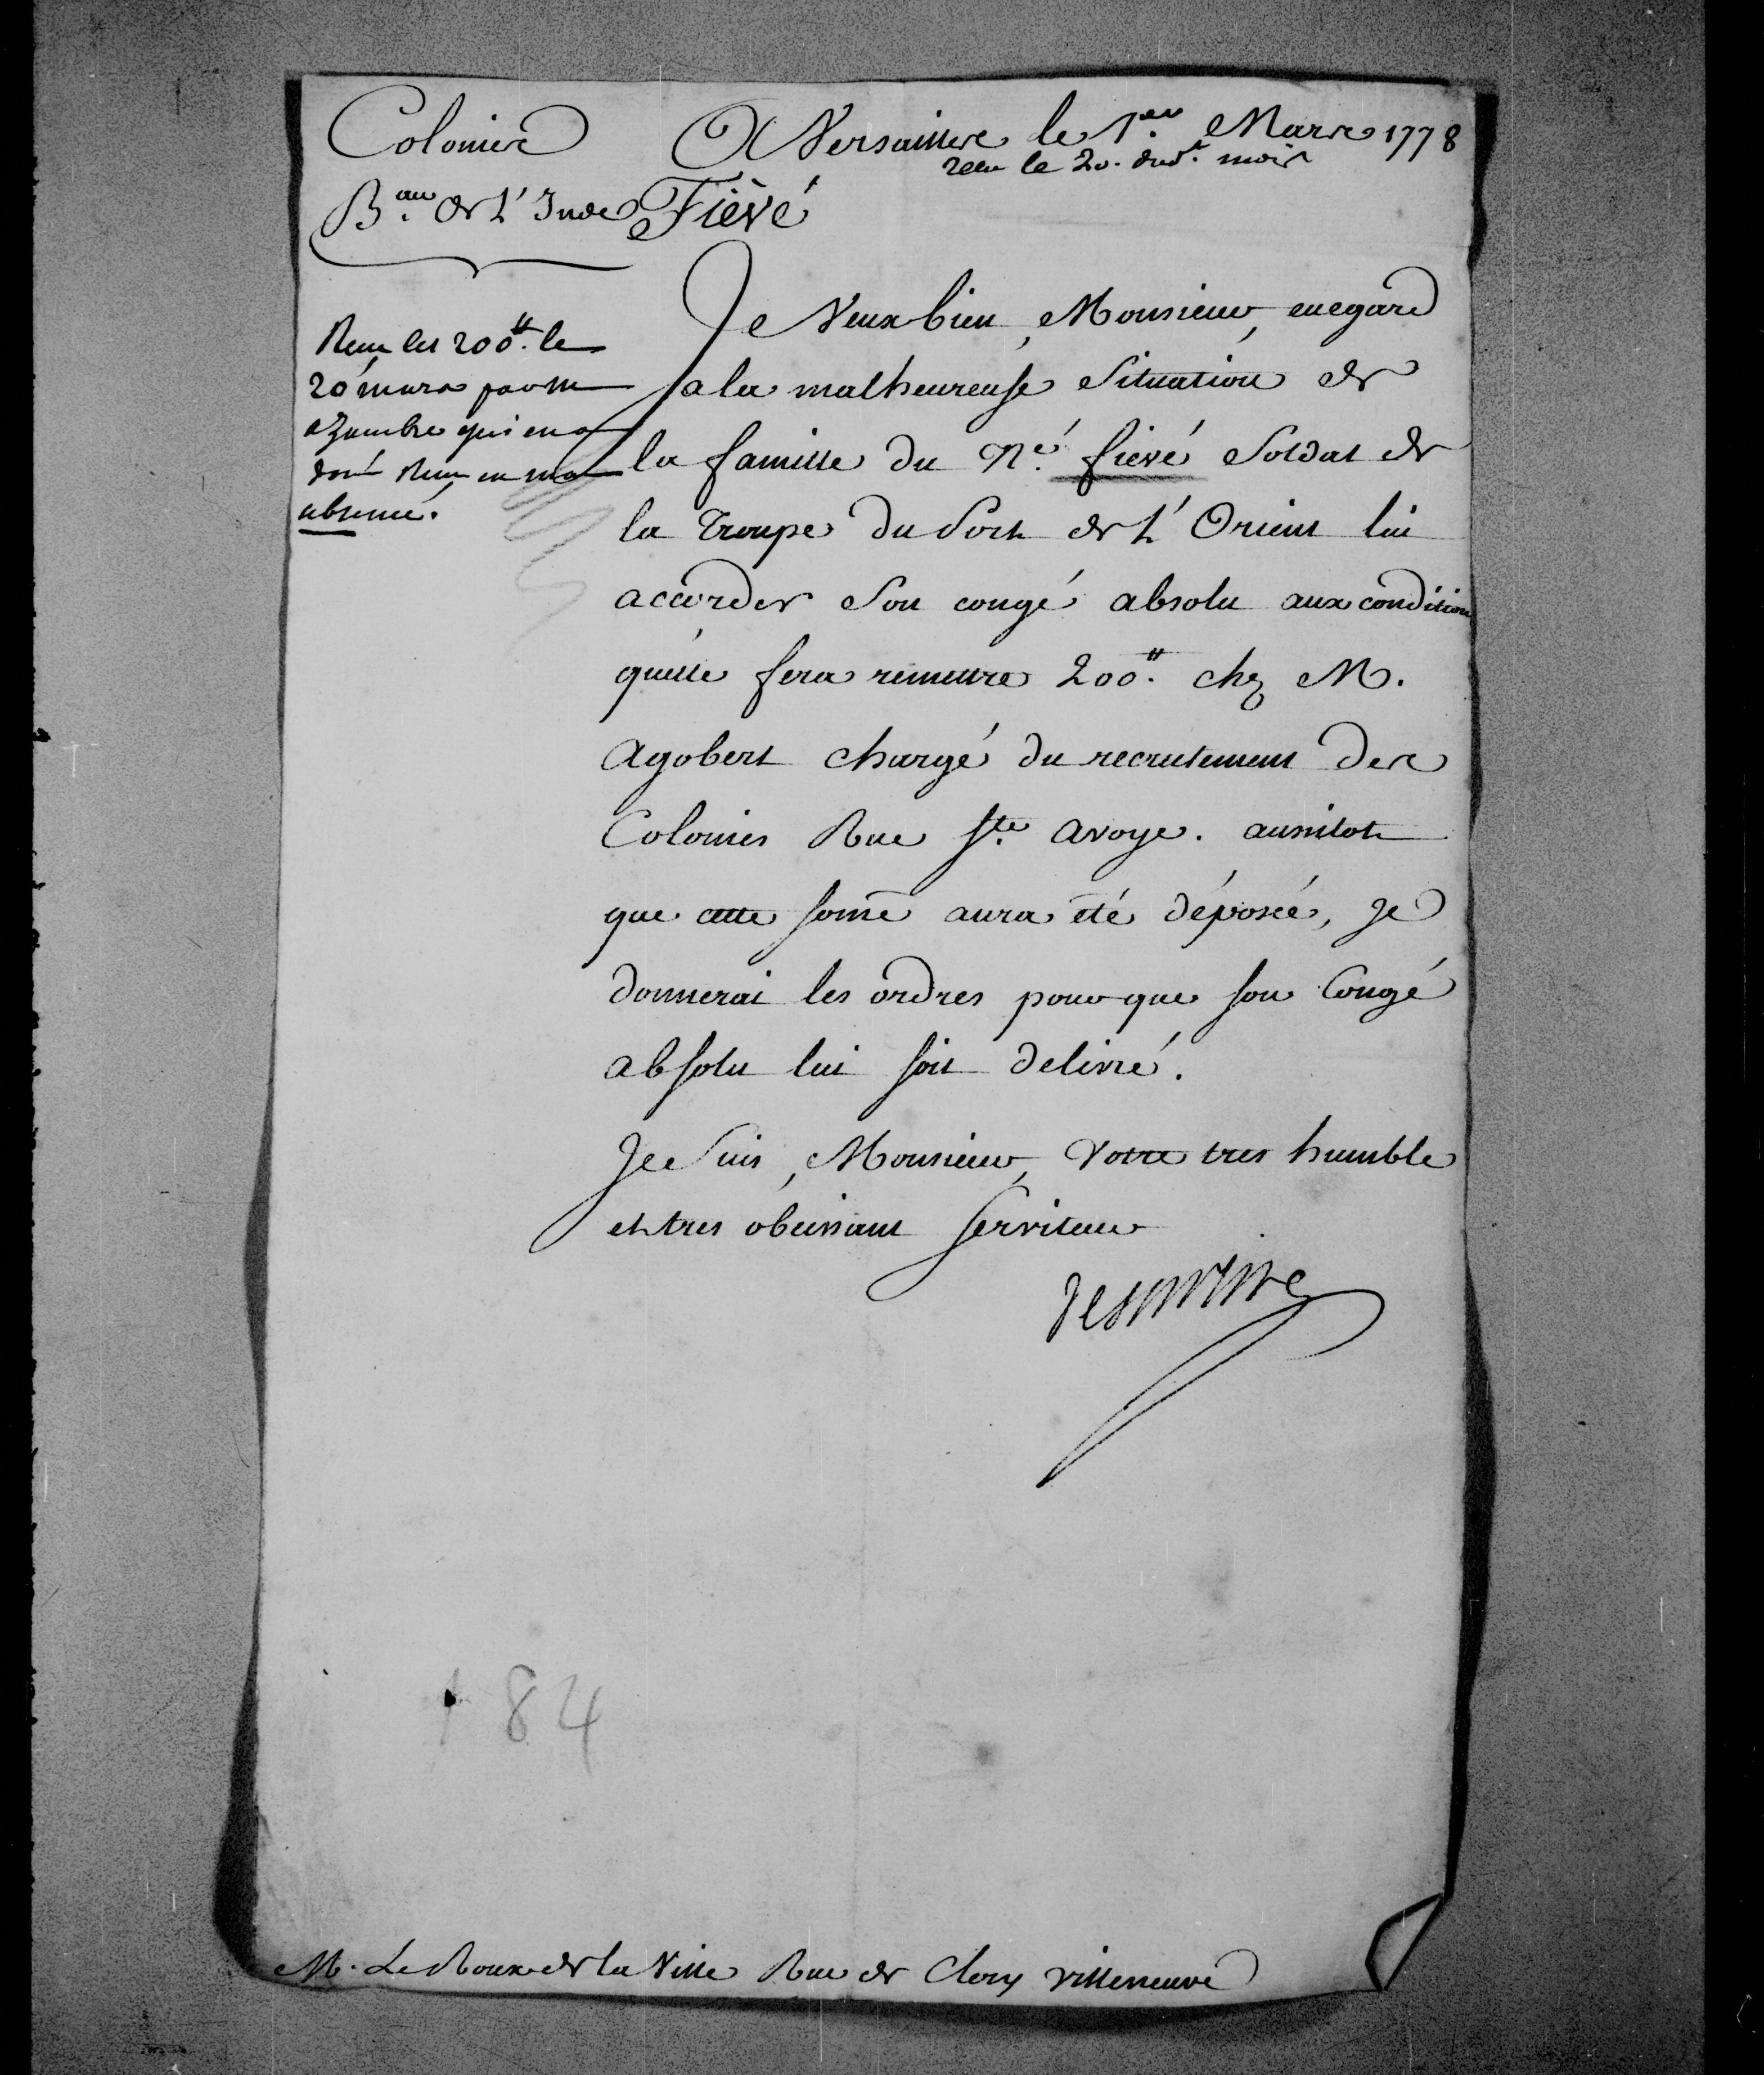 Colonies
A Versailles le 1.er Mars 1778
recu le 20. dud.t mois
B.au de L'Inde
Fiévé
Reçu les 200.tt le
20 mars par M
qui en a
doné Reçu en mon
absence.
Je Veux bien, Monsieur, eu egard
a la malheureuse Situation de
la famille du N.é fievé Soldat de
la Troupe du Port de L'Orient lui
accorder Son congé absolu aux condition
quelle fera remettre 200.tt chez M.
Agobert chargé du recrutement des
Colonies Rue S.te avoye. aussitot
que cette some aura été déposée, Je
donnerai les ordres pour que son Congé
absolu lui soit delivré.
Je Suis, Monsieur, Votre tres humble
et tres obeissant Serviteur
desartine
184
M. Le Roux de la Ville Rue de Clery Villeneuve